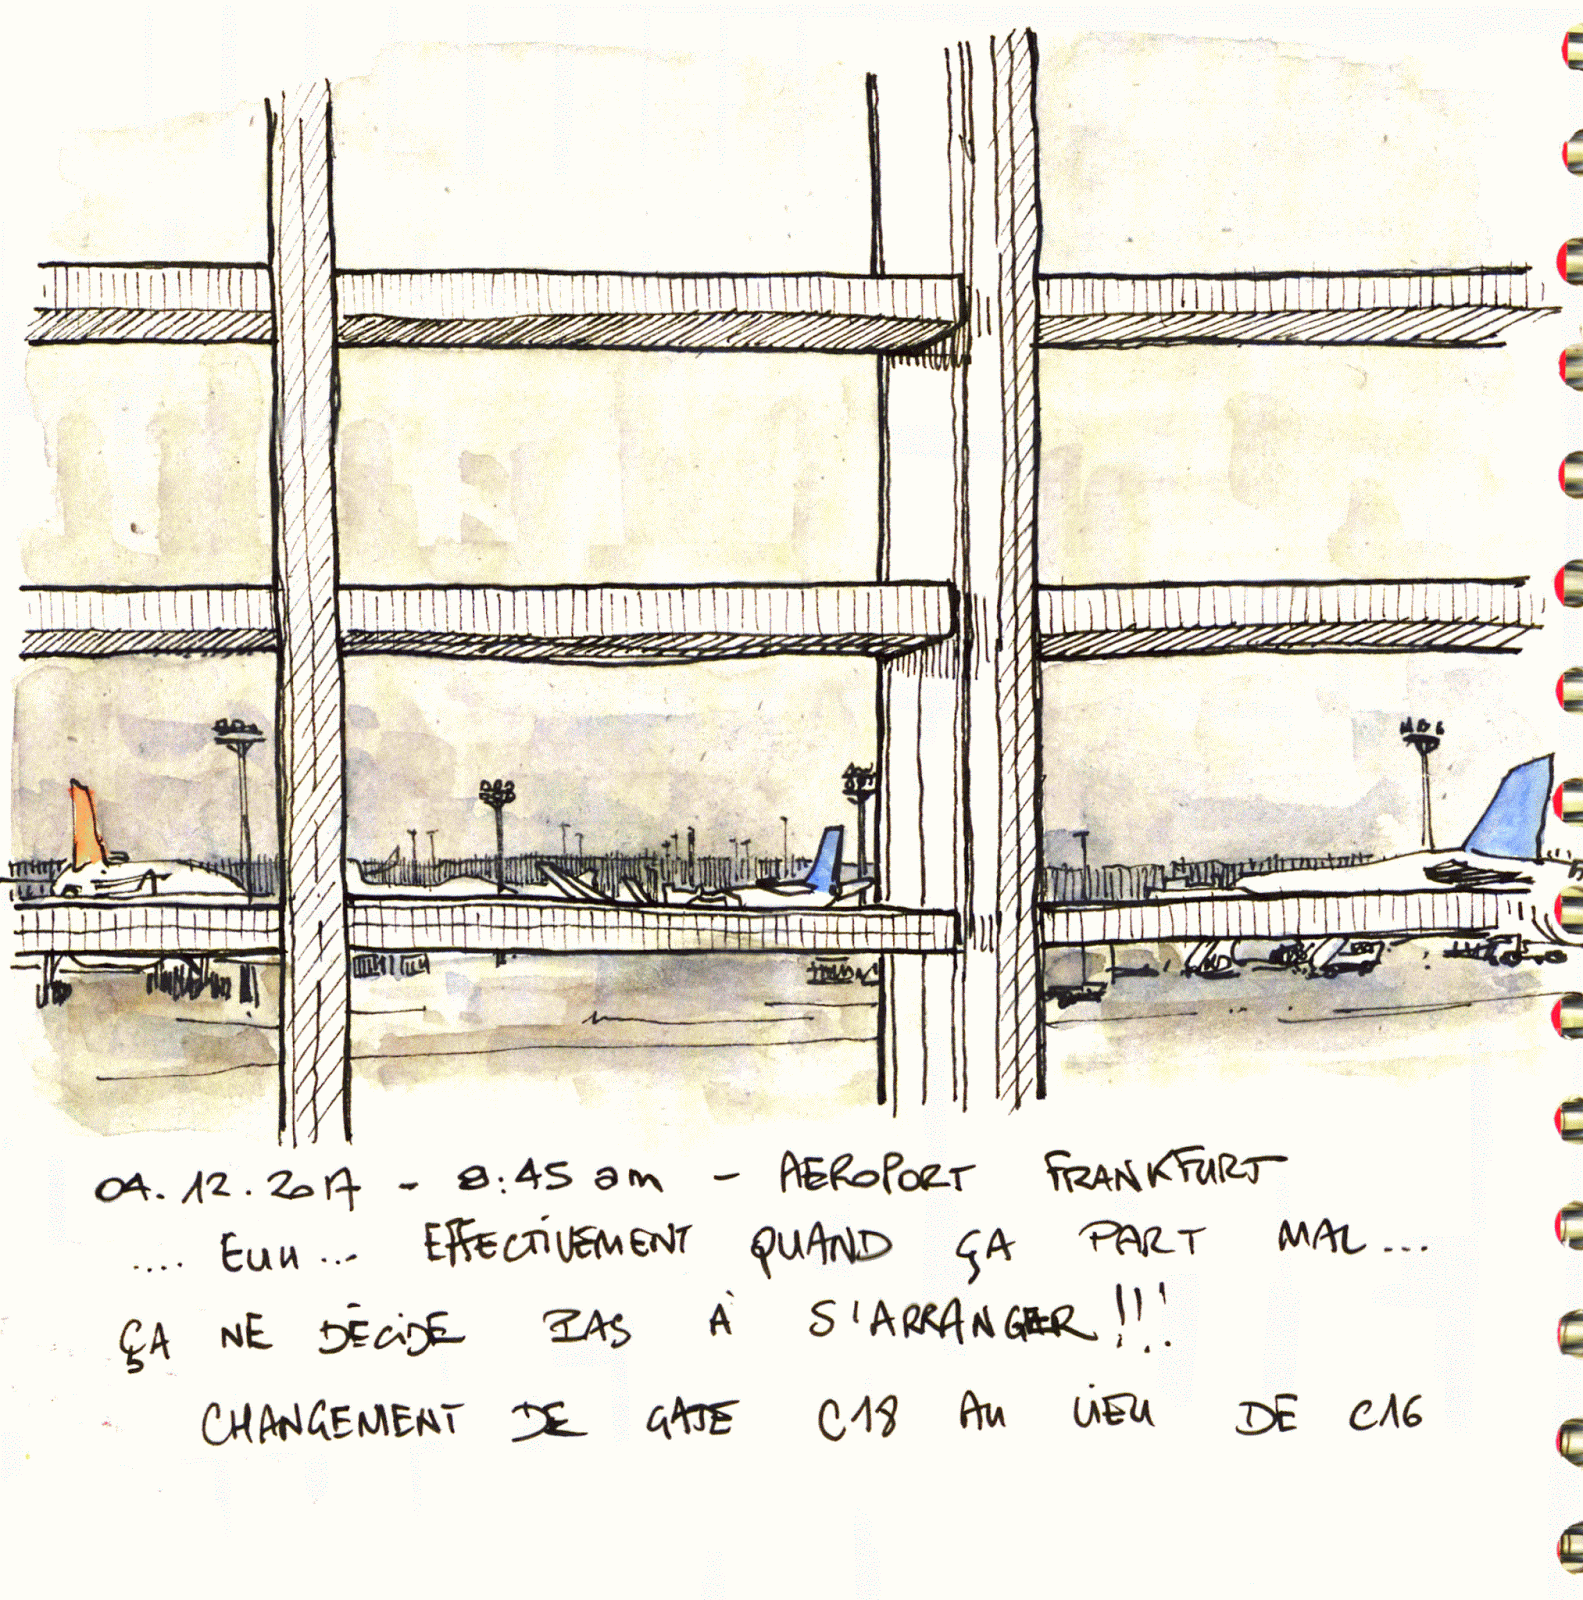 04.12.2017 - 8:45 am - AEROPORT FRANKFURT
.... Euh... EFFECTIVEMENT QUAND ÇA PART MAL...
ÇA NE DÉCIDE PAS À S'ARRANGER!!!
CHANGEMENT DE GATE C18 AU LIEU DE C16